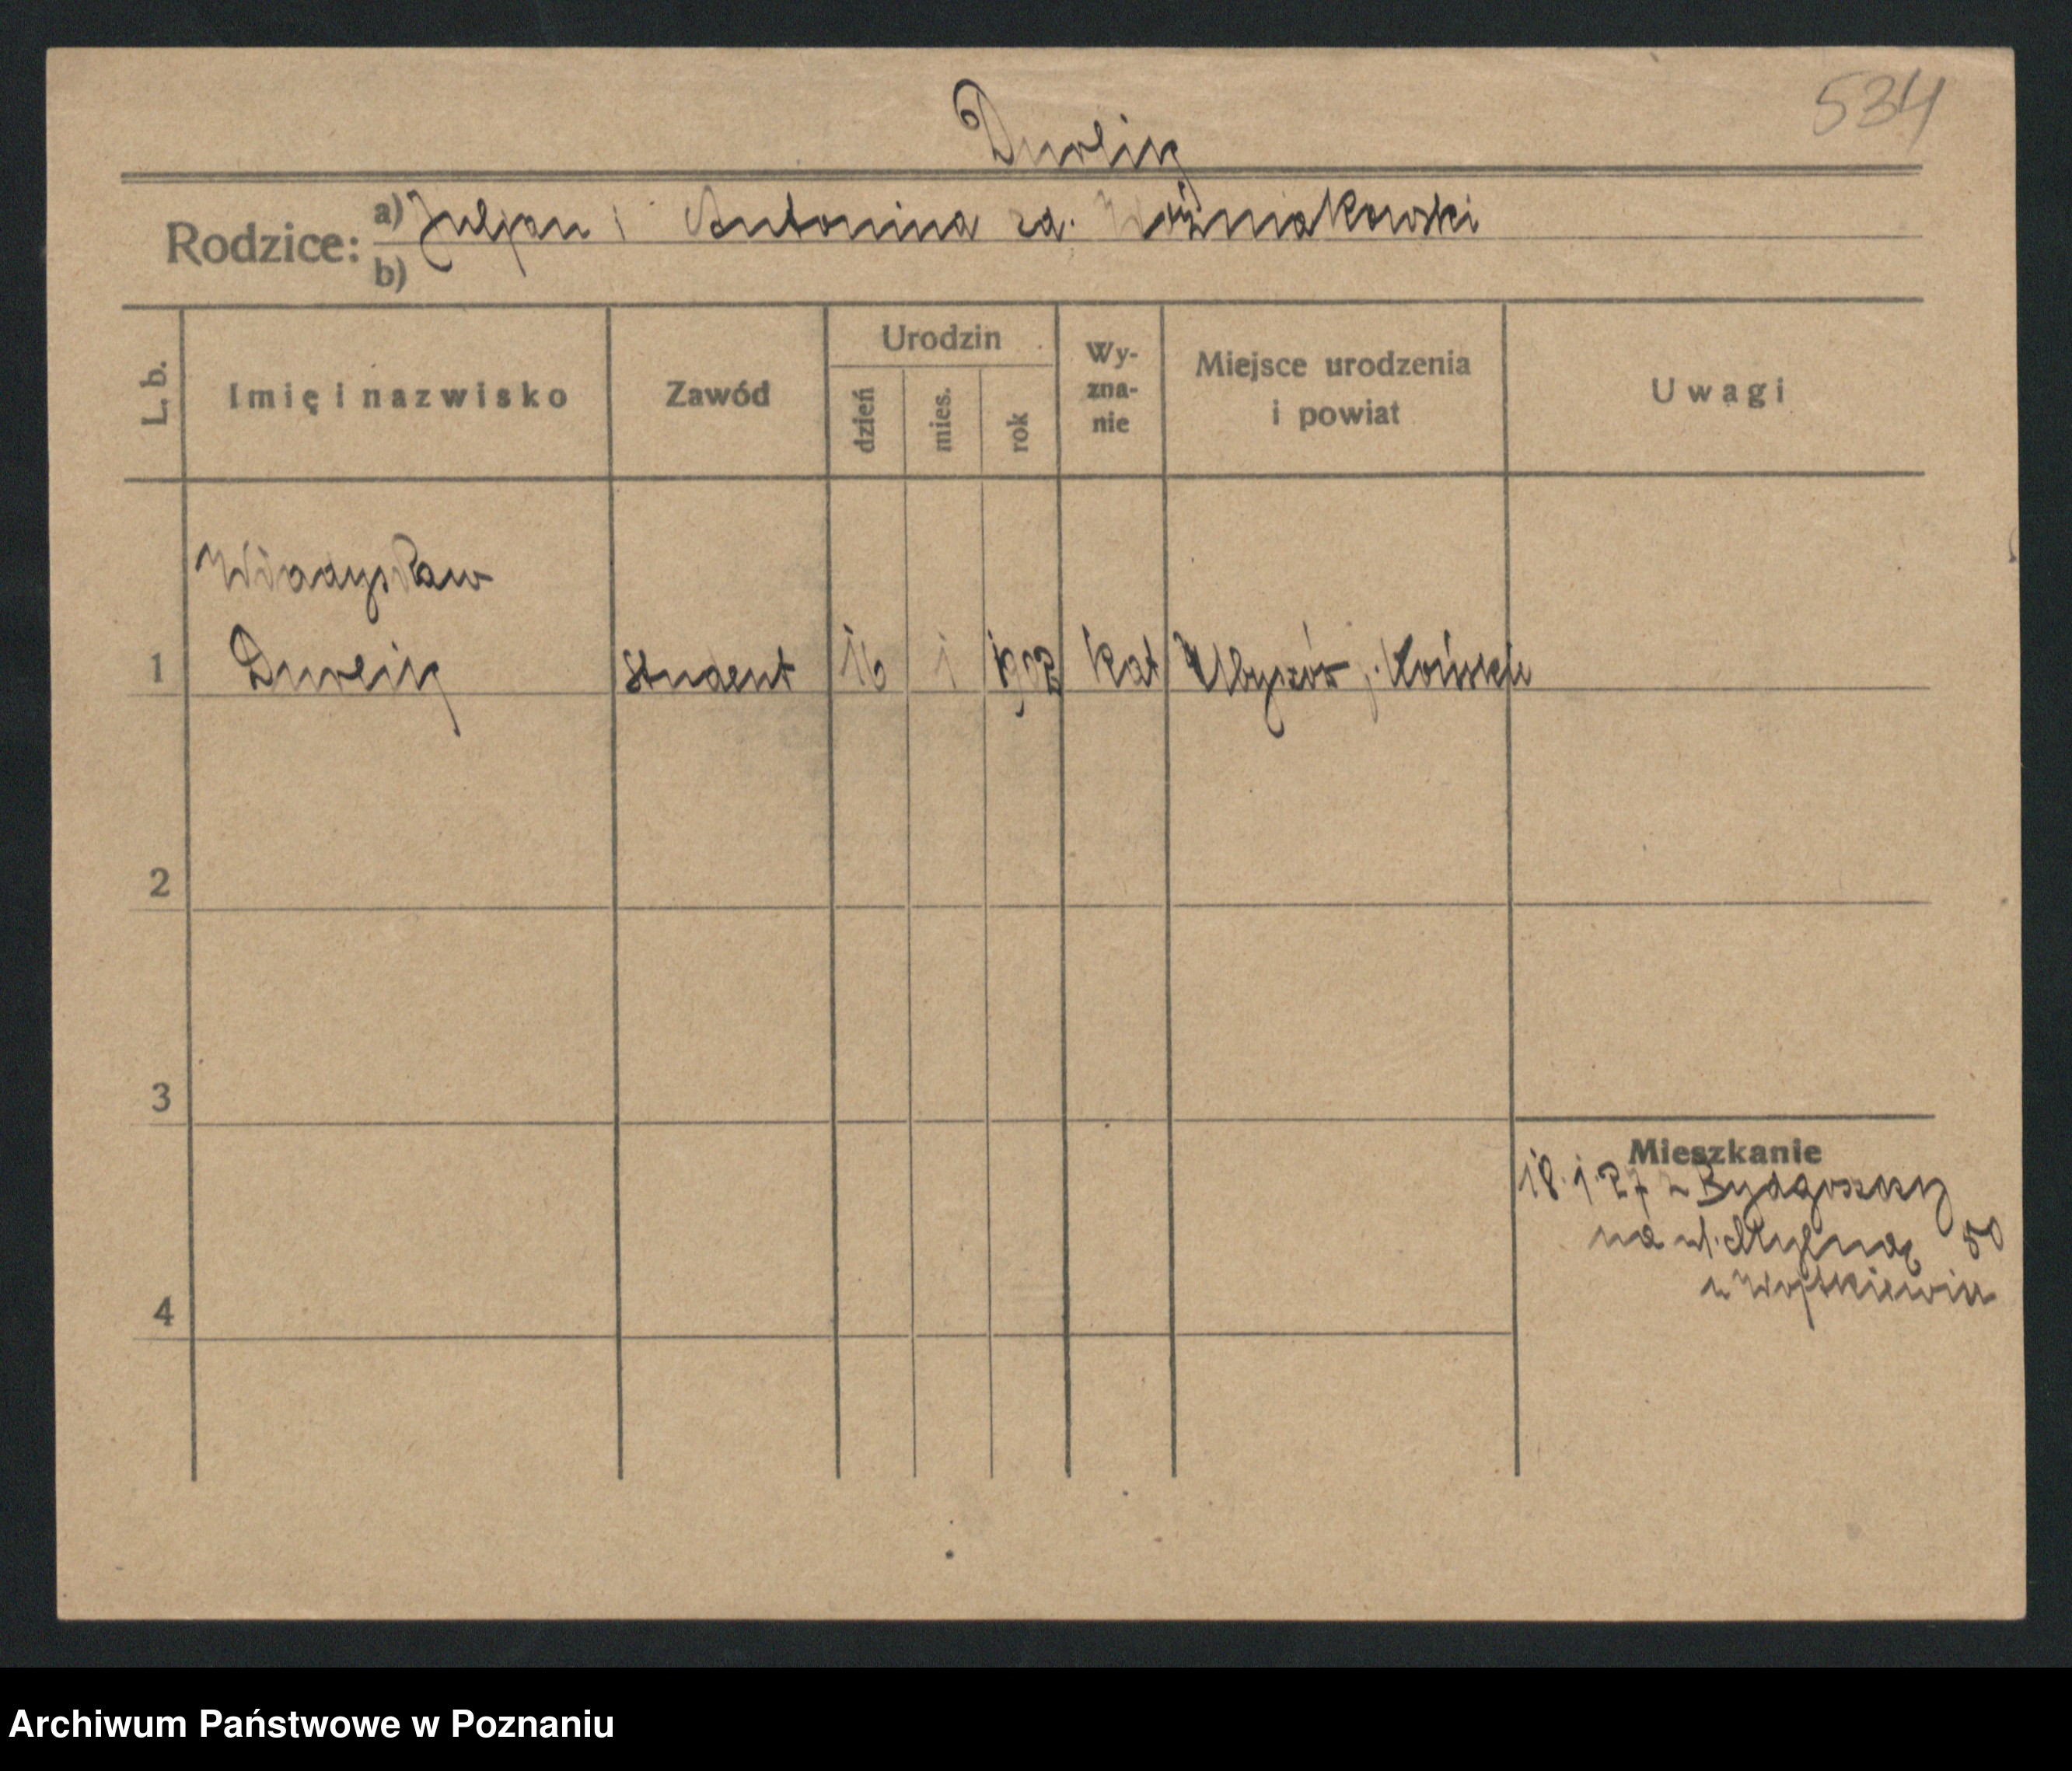 534
Durlik
Rodzice: a) Juljan i Antonina zd. Woźniakowski
b)
L. b. Imię i nazwisko Zawód Urodzin dzień mies. rok Wy-zna-nie Miejsce urodzenia i powiat Uwagi
Władysław
1 Durlik student 16 1 1902 kat Końskie
2
3
Mieszkanie
18.1.27 z Bydgoszczy
na ul. Młyńską 50
4
Archiwum Państwowe w Poznaniu